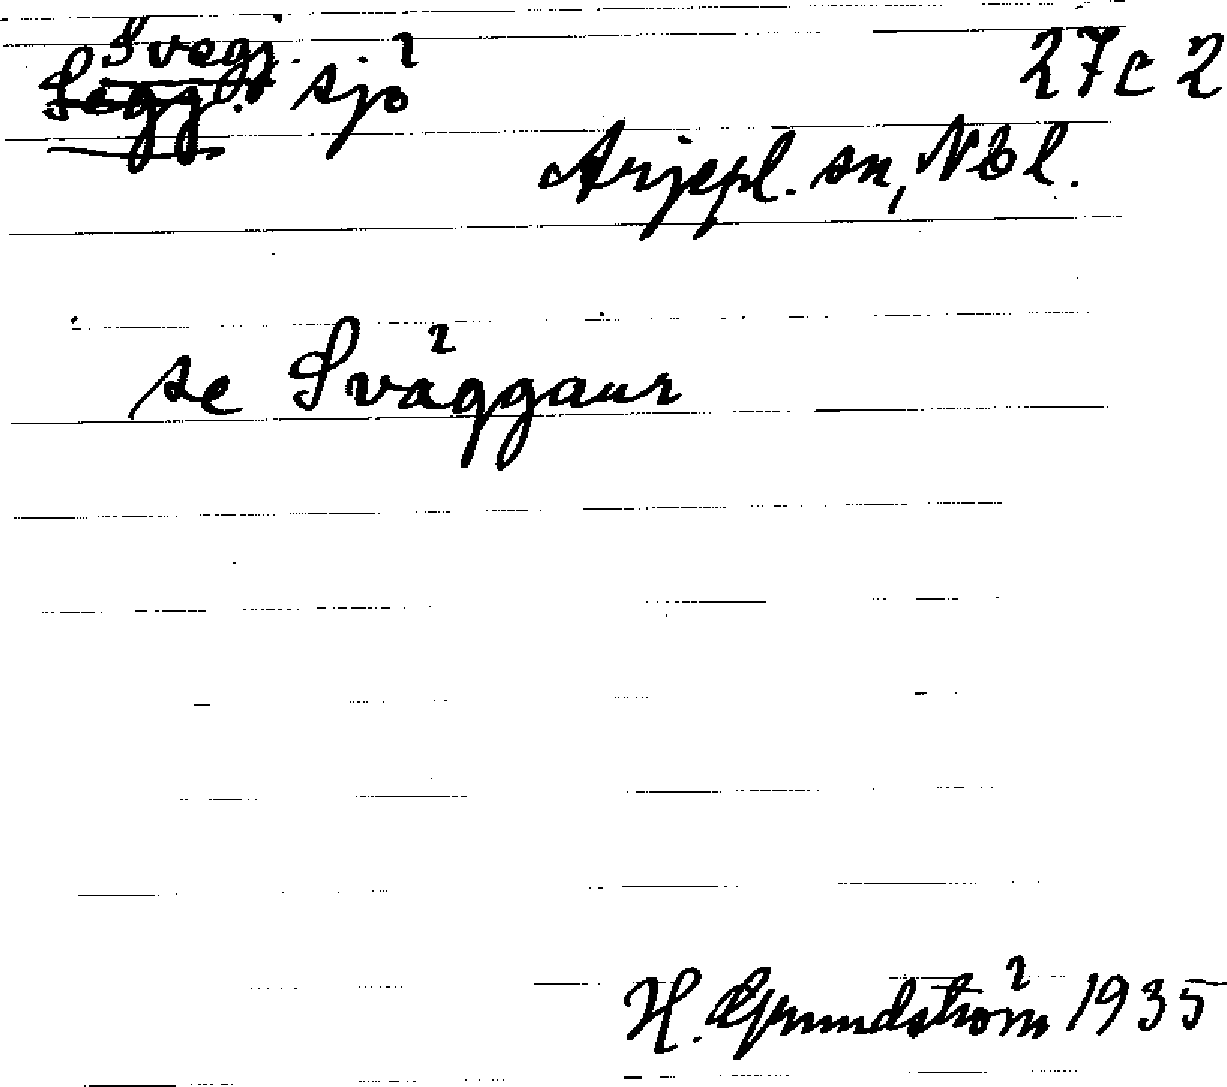 Svegj. 27c2
Segg. sjö
Arjepl. sn, Nbl.
se Sväggaur
H. Grundström 1935